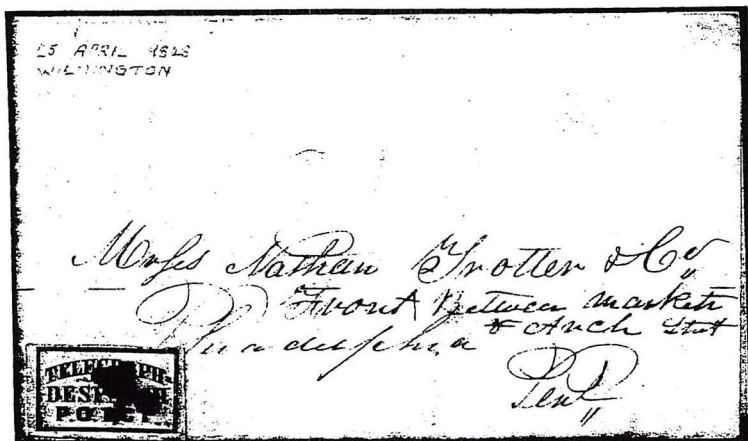 25 APRIL 1828
WILMINGTON
Messs Nathan Trotter & Co
Front Between market
& Arch Street
Philadelphia
Pena
TELEGRAPH
DESPATCH
P.O.